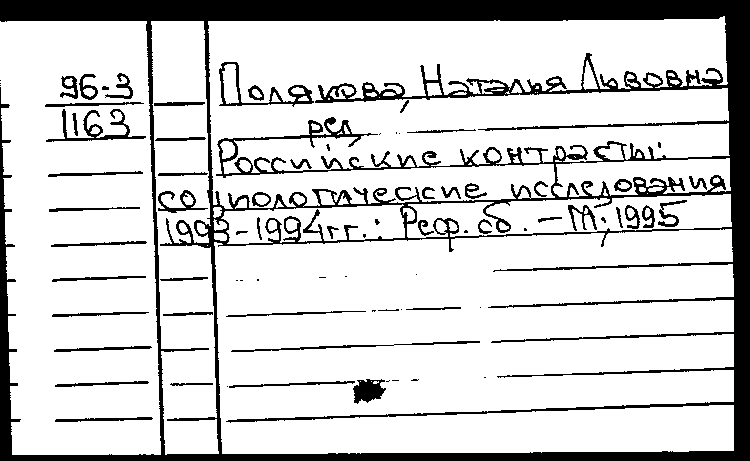 96-3 Полякова, Наталья Львовна
1163 ред.
Российские контрасты:
социологические исследования
1993-1994гг.: Реф. сб. - М., 1995